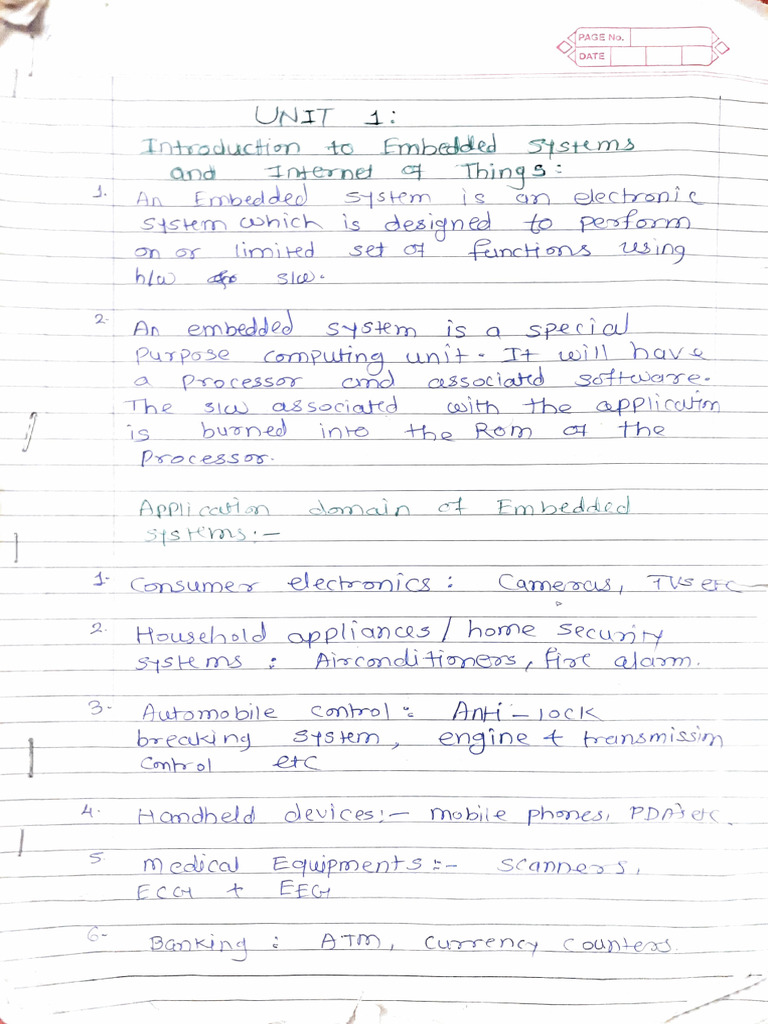 PAGE No.
DATE
UNIT 1:
Introduction to Embedded Systems
and Internet of Things:
1. An Embedded system is an electronic
system which is designed to perform
on or limited set of functions using
h/w s/w.
2. An embedded system is a special
Purpose computing unit. It will have
a processor and associated software.
The s/w associated with the application
is burned into the Rom of the
Processor.
Application domain of Embedded
systems:-
1- Consumer electronics: Cameras, TVs etc
2. Household appliances/home security
systems: Airconditioners, fire alarm.
3- Automobile control: Anti-lock
breaking system, engine + transmission
control etc
4. Handheld devices:- mobile phones, PDA's etc.
5. Medical Equipments:- scanners,
ECG + EEG
6- Banking: ATM, currency counters.